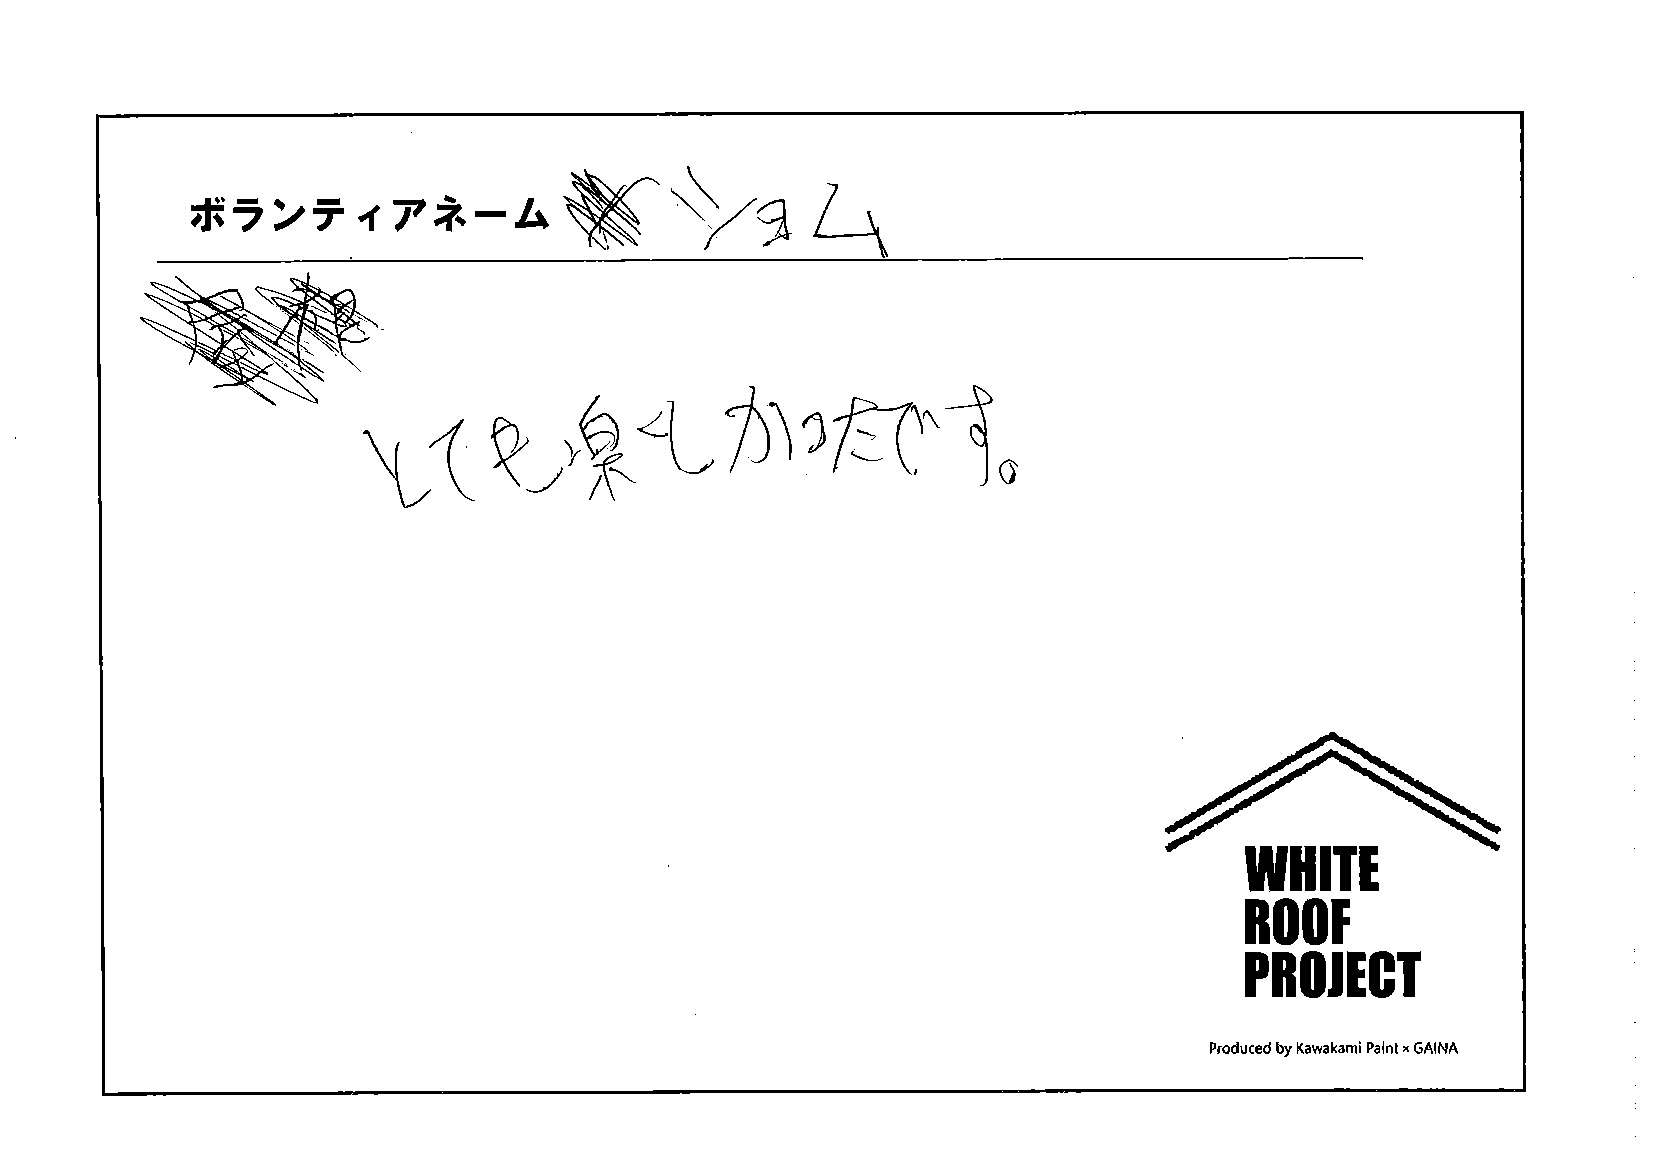 ボランティアネーム
とても楽しかったです。
WHITE
ROOF
PROJECT
Produced by Kawakami Paint × GAINA